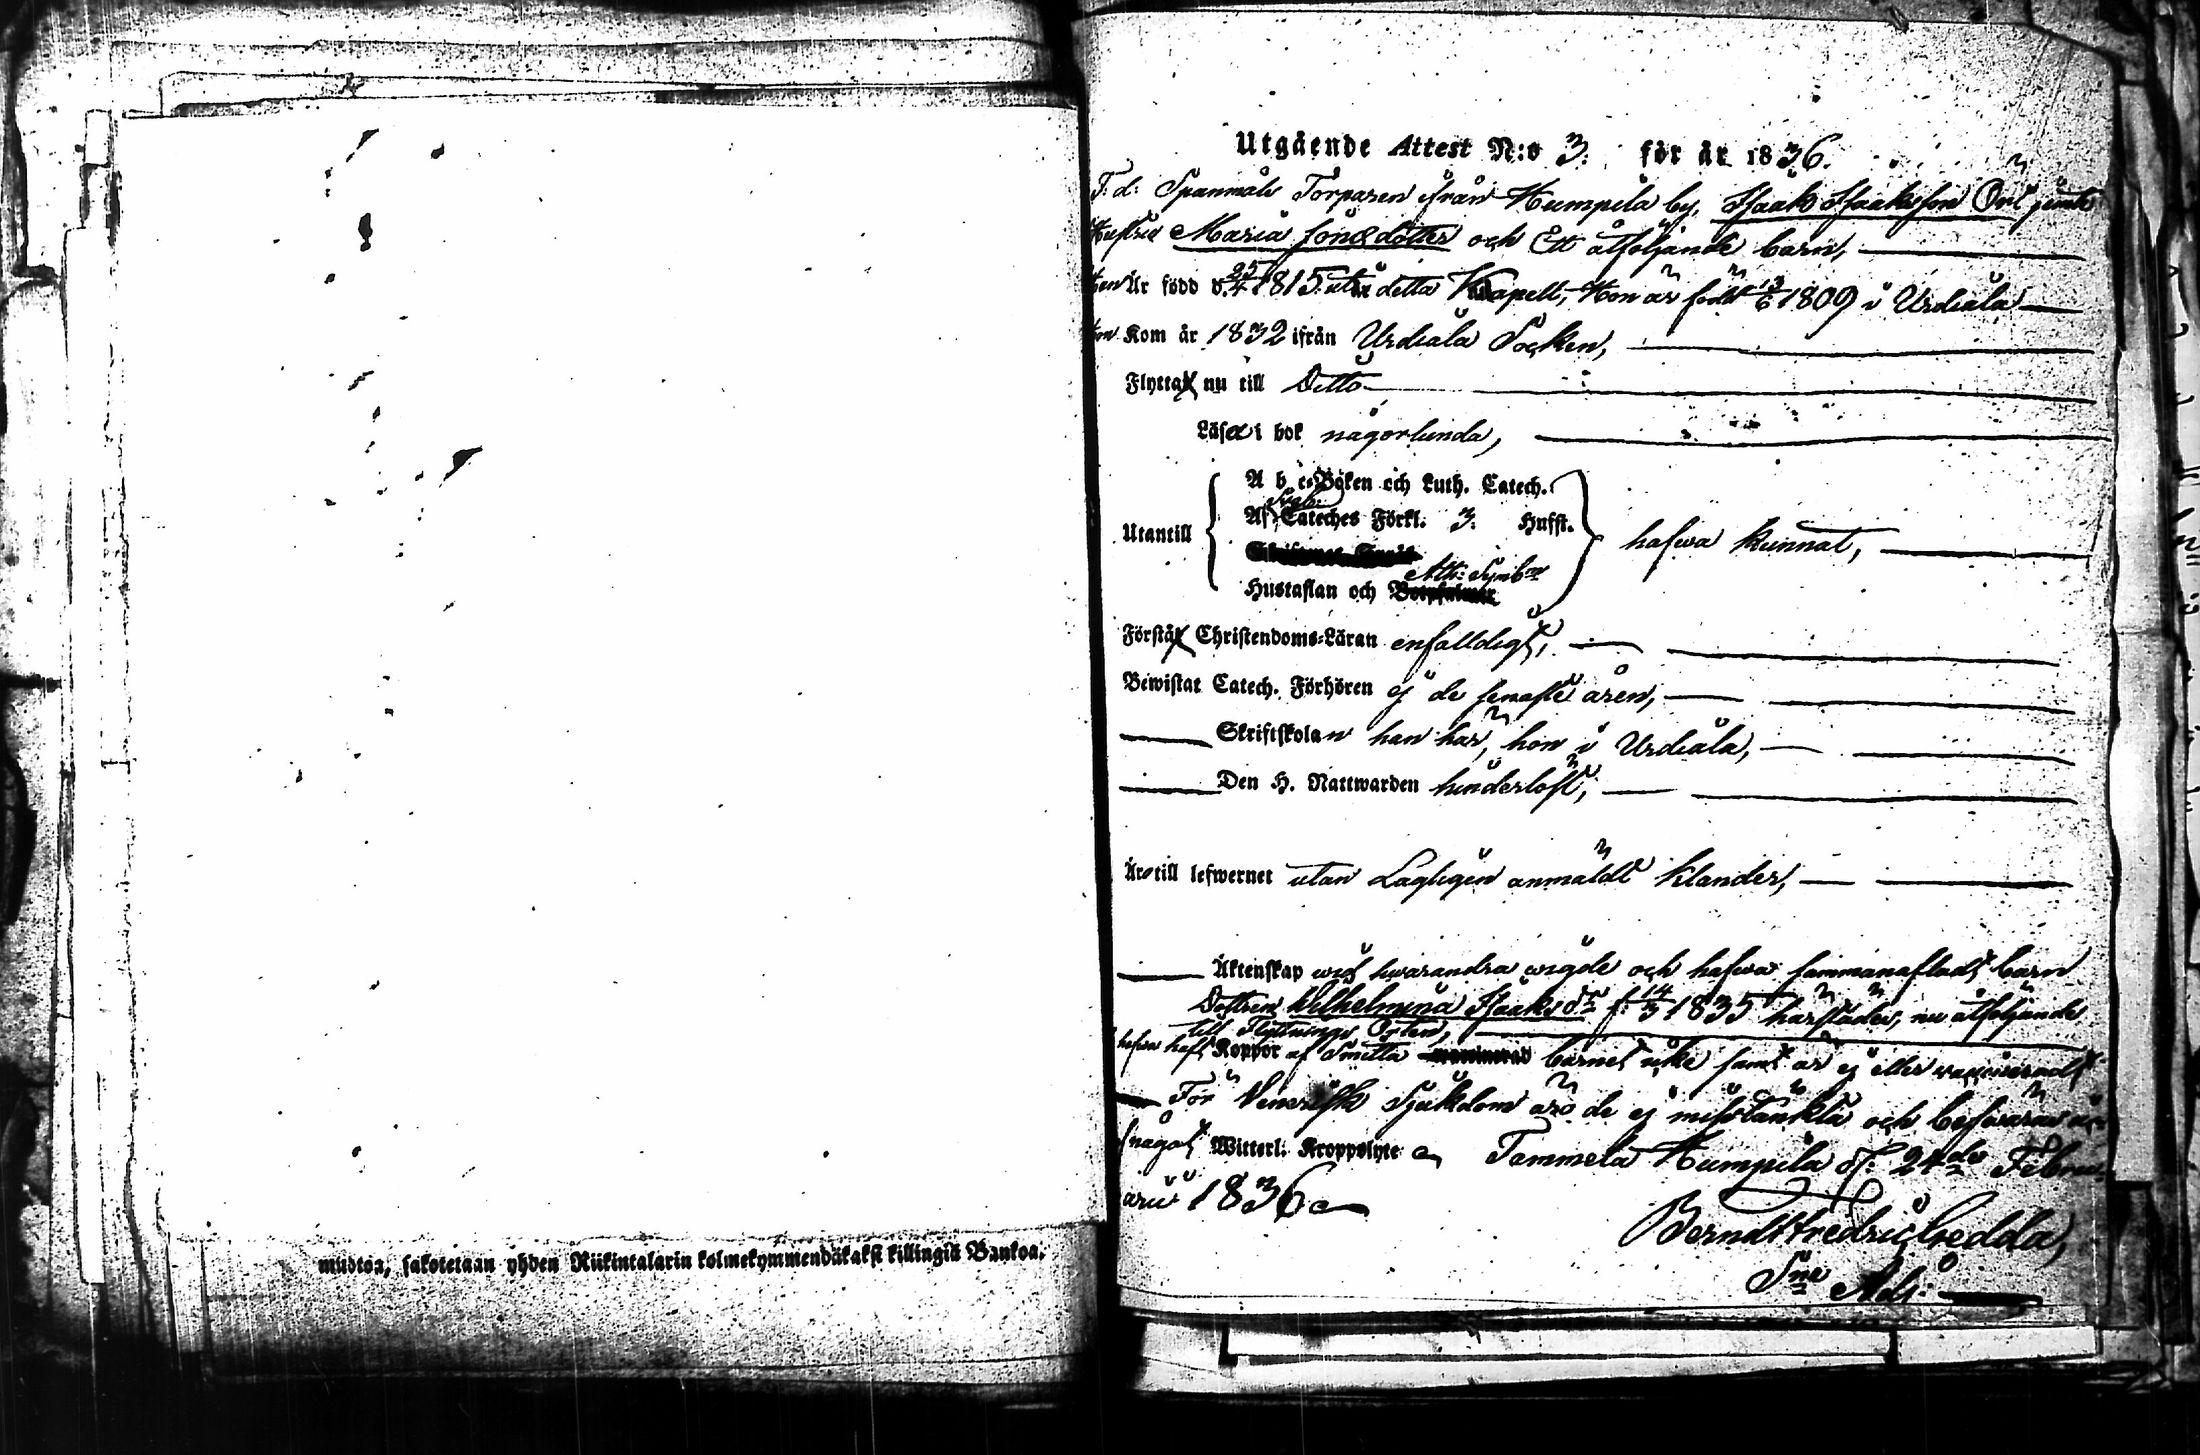 mudtoa, sakotetaan yhden Riikintalarin kolmekymmendäkaksi killingiä Bankoa.
Utgående Attest N:o 3. för år 1836.
F: d: Spanmåls Torparen ifrån Humpila by, Isaak Isaaksson Öril jämte
Hustru Maria Jönsdotter och Ett åtföljande barn,
Han Är född d. 25/4 1815 uti detta Kapell, Hon är född 13/6 1809 i Urdiala
Hon Kom år 1832 ifrån Urdiala Socken,
Flytta nu till Ditto
Läsa i bok någorlunda,
A b c-Boken och Luth. Catech.
Svebi.
Af Cateches Förkl. 3. Hufst.
Utantill hafva kunnat,
Ath: Symb
Hustaflan och
Förstå Christendoms-Läran enfalldigt,
Bewistat Catech. Förhören ej de senaste åren,
Skriftskolan han här, hon i Urdiala,
Den H. Nattwarden hinderlöst,
Äro till lefwernet utan Lagligen anmäldt klander,
Äktenskap wid hwarandra wigde och hafwa sammanaflat barn
Dottren Wilhelmina Isaaksdr f: 14/3 1835 härstädes, nu åtföljande
till Flyttnings Orten,
hafwa haft Koppor af Smitta barnet icke samt är ej eller vaccineradt
För Venerisk Sjukdom äro de ej misstänkta och besväras
något Witterl. Kroppslyte Tammela Humpila d: 24de Febru-
arii 1836
Berndt Fredric Gedda,
Sne Adj: